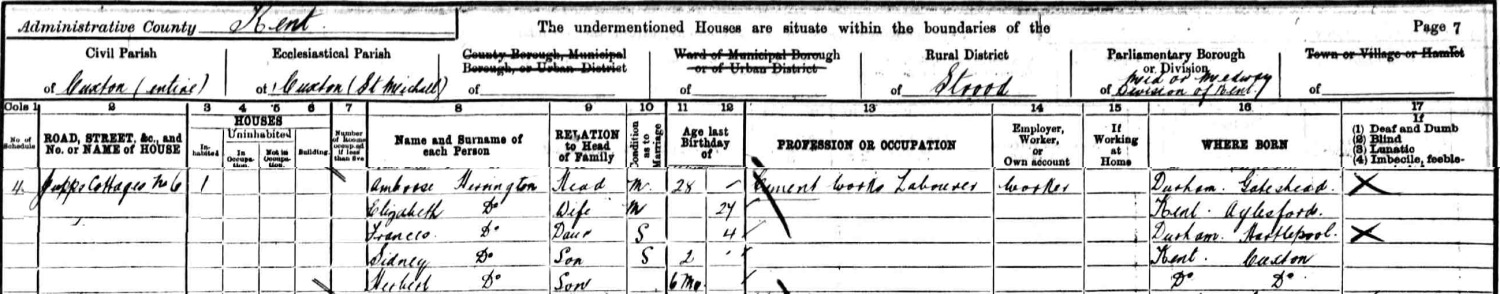 Administrative County Kent The undermentioned Houses are situate within the boundaries of the Page 7
Civil Parish Ecclesiastical Parish County Borough, Municipal Borough, or Urban District Ward of Municipal Borough or of Urban District Rural District Parliamentary Borough or Division Town or Village or Hamlet
of Cuxton (entire) of Cuxton (St Michael) of of of Strood of Mid or Medway Division of Kent of
Cols 1 2 3 4 5 6 7 8 9 10 11 12 13 14 15 16 17
No. of Schedule ROAD, STREET, &c., and No. or NAME of HOUSE HOUSES Inhabited Uninhabited In Occupation. Not in Occupation. Building Number of Rooms occupied if less than five Name and Surname of each Person RELATION to Head of Family Condition as to Marriage Age last Birthday of PROFESSION OR OCCUPATION Employer, Worker, or Own account If Working at Home WHERE BORN If (1) Deaf and Dumb (2) Blind (3) Lunatic (4) Imbecile, feeble-
4 Cottages No 6 1 Ambrose Herrington Head M 28 Cement Works Labourer Worker Durham. Gateshead.
Elizabeth Do Wife M 27 Kent. Aylesford.
Frances Do Daur S 4 Durham. Hartlepool.
Sidney Do Son S 2 Kent. Cuxton
Herbert Do Son 6 Mo. Do Do